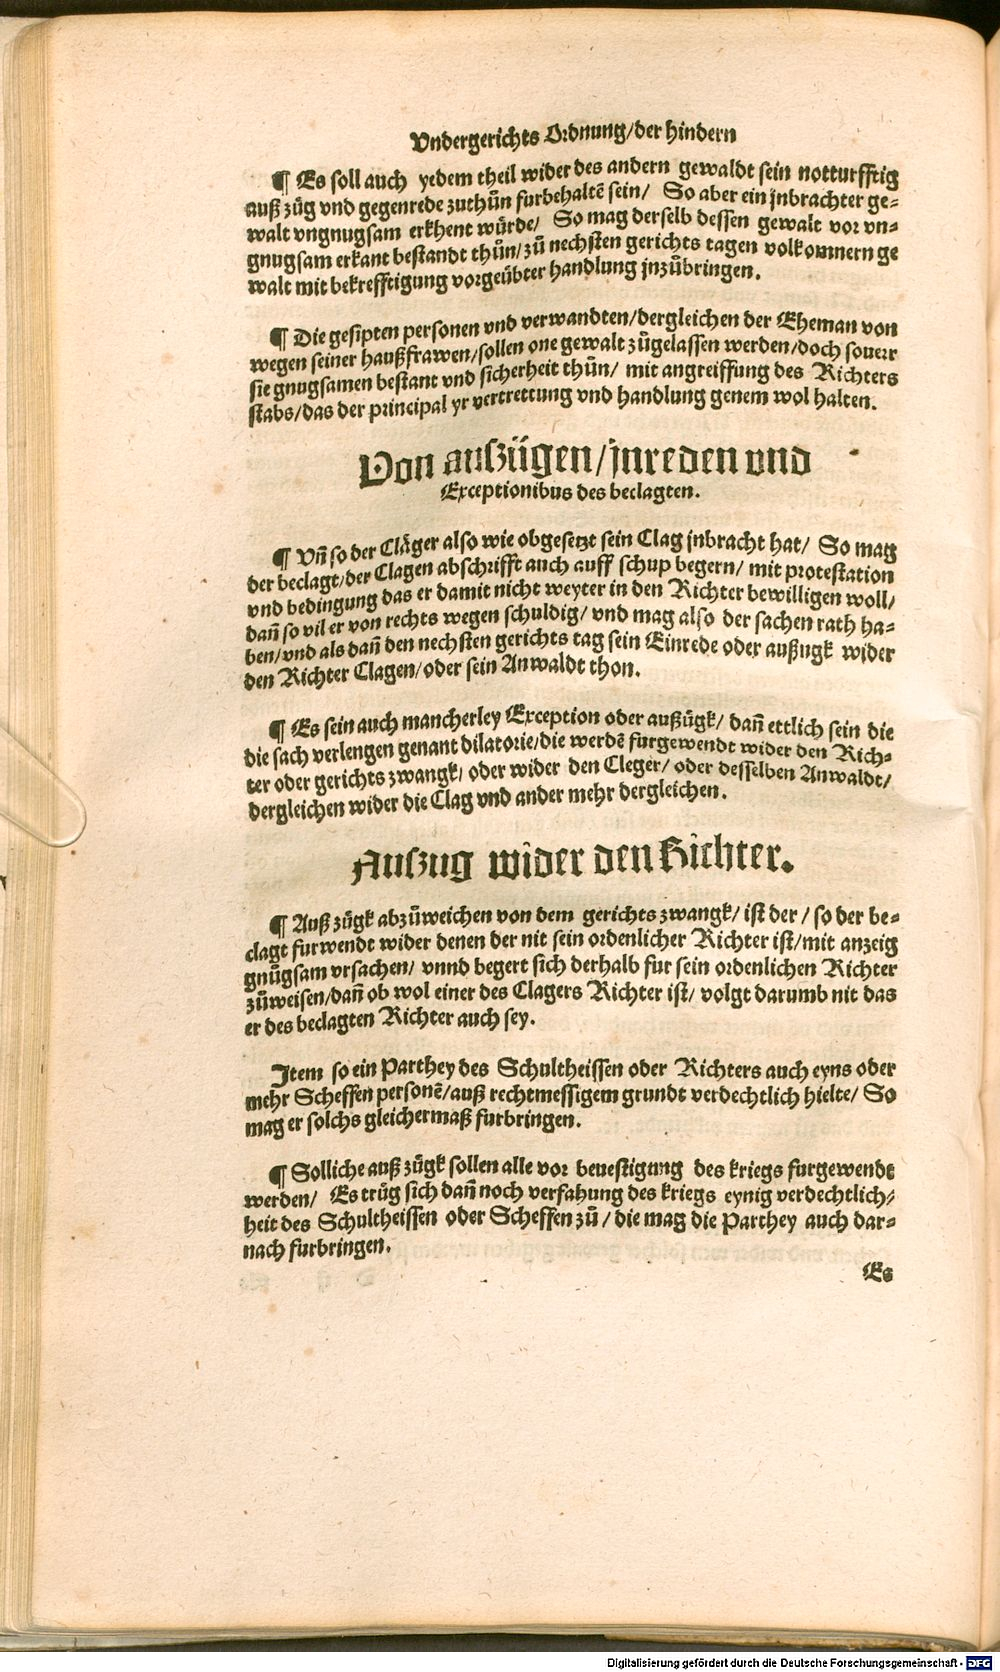 Vndergerichts Ordnung/der hindern
¶ Es soll auch yedem theil wider des andern gewaldt sein notturfftig
auß zůg vnd gegenrede zuthůn furbehaltē sein/ So aber ein jnbrachter ge-
walt vngnugsam erkhent würde/ So mag derselb dessen gewalt vor vn-
gnugsam erkant bestandt thůn/zů nechsten gerichts tagen volkomnern ge
walt mit bekrefftigung vorgeübter handlung jnzůbringen.
¶ Die gesipten personen vnd verwandten/dergleichen der Eheman von
wegen seiner haußfrawen/sollen one gewalt zůgelassen werden/doch souerr
sie gnugsamen bestant vnd sicherheit thůn/ mit angreiffung des Richters
stabs/das der principal yr vertrettung vnd handlung genem wol halten.
Von auszügen/jnreden vnd
Exceptionibus des beclagten.
¶ Vñ so der Cläger also wie obgesetzt sein Clag jnbracht hat/ So mag
der beclagt/der Clagen abschrifft auch auff schup begern/ mit protestation
vnd bedingung das er damit nicht weyter in den Richter bewilligen woll/
dañ so vil er von rechts wegen schuldig/ vnd mag also der sachen rath ha-
ben/vnd als dañ den nechsten gerichts tag sein Einrede oder außugk wider
den Richter Clagen/oder sein Anwaldt thon.
¶ Es sein auch mancherley Exception oder außůgk/ dañ ettlich sein die
die sach verlengen genant dilatorie/die werdē furgewendt wider den Rich-
ter oder gerichts zwangk/ oder wider den Cleger/ oder desselben Anwaldt/
dergleichen wider die Clag vnd ander mehr dergleichen.
Auszug wider den Richter.
¶ Auß zůgk abzůweichen von dem gerichts zwangk/ ist der/ so der be-
clagt furwendt wider denen der nit sein ordenlicher Richter ist/mit anzeig
gnůgsam vrsachen/ vnnd begert sich derhalb fur sein ordenlichen Richter
zůweisen/dañ ob wol einer des Clagers Richter ist/ volgt darumb nit das
er des beclagten Richter auch sey.
Item so ein Parthey des Schultheissen oder Richters auch eyns oder
mehr Scheffen personē/auß rechtmessigem grundt verdechtlich hielte/ So
mag er solchs gleichermaß furbringen.
¶ Solliche auß zůgk sollen alle vor beuestigung des kriegs furgewendt
werden/ Es trůg sich dañ noch verfahung des kriegs eynig verdechtlich/
heit des Schultheissen oder Scheffen zů/ die mag die Parthey auch dar-
nach furbringen.
Es
Digitalisierung gefördert durch die Deutsche Forschungsgemeinschaft - DFG